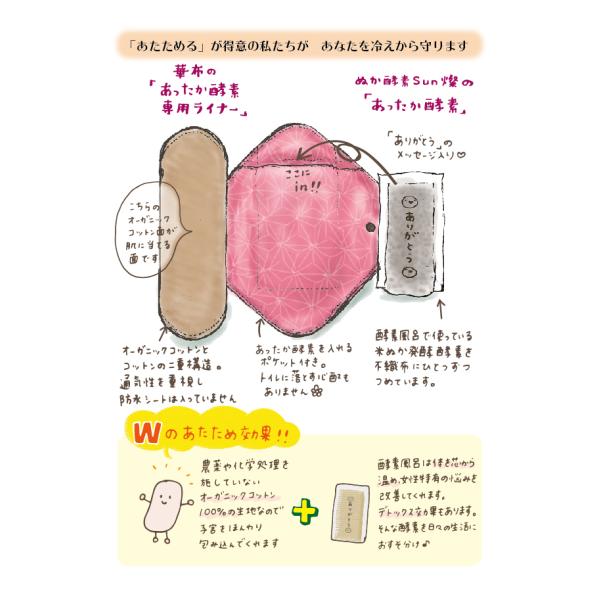 「あたためる」が得意の私たちが　あなたを冷えから守ります
華布の
「あったか酵素
専用ライナー」
ぬか酵素Sun燦の
「あったか酵素」
「ありがとう」の
メッセージ入り♡
ここに
in!!
ありがとう
こちらの
オーガニック
コットン面が
肌に当てる
面です
オーガニックコットンと
コットンの二重構造。
通気性を重視し
防水シートは入っていません
あったか酵素を入れる
ポケット付き。
トイレに落とす心配も
ありません
酵素風呂で使っている
米ぬか発酵酵素を
不織布にひとつずつ
つめています。
Wのあたため効果!!
農薬や化学処理を
施していない
オーガニックコットン
100%の生地なので
子宮をほんわり
包み込んでくれます
+
ありがとう
酵素風呂は体を芯から
温め、女性特有の悩みを
改善してくれます。
デトックス効果もあります。
そんな酵素を日々の生活に
おすそ分け♪